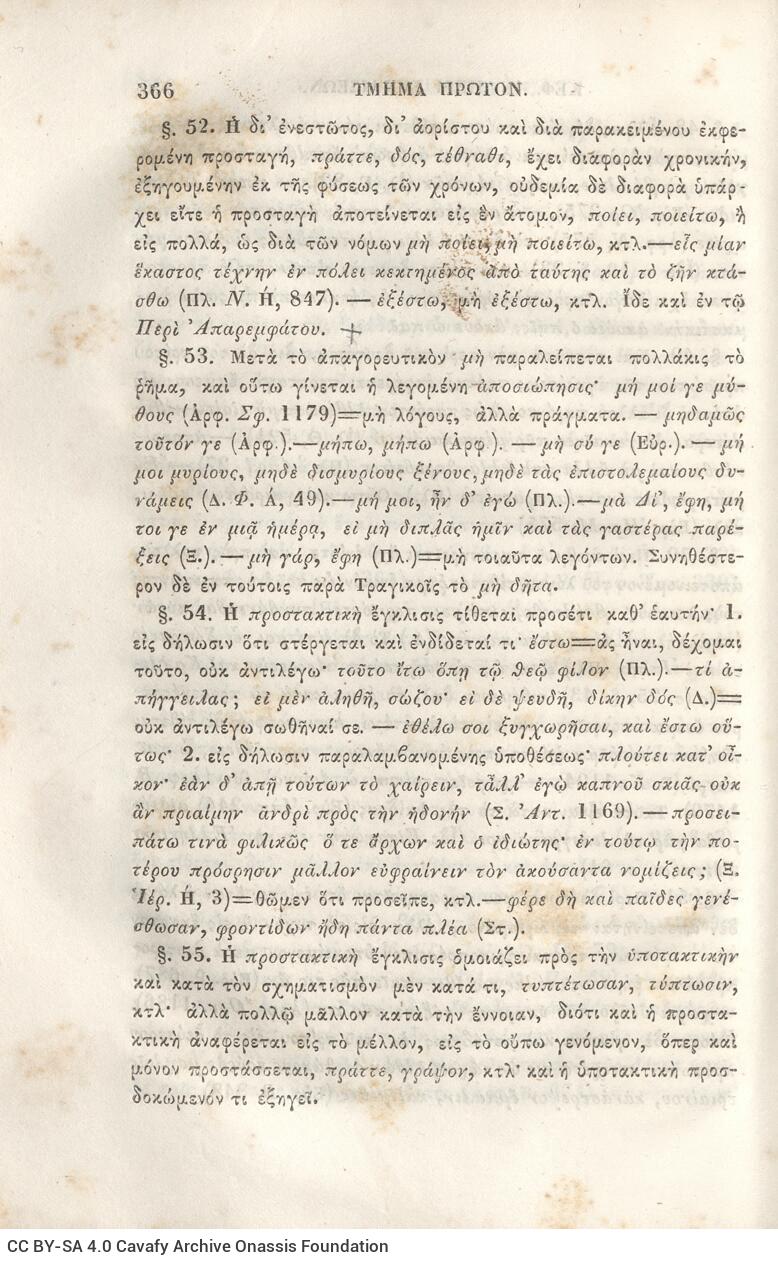 366 ΤΜΗΜΑ ΠΡΩΤΟΝ.
§. 52. Ἡ δι’ ἐνεστῶτος, δι’ ἀορίστου καὶ διὰ παρακειμένου ἐκφε-
ρομένη προσταγή, πρᾶττε, δός, τέθναθι, ἔχει διαφορὰν χρονικήν,
ἐξηγουμένην ἐκ τῆς φύσεως τῶν χρόνων, οὐδεμία δὲ διαφορὰ ὑπάρ-
χει εἴτε ἡ προσταγὴ ἀποτείνεται εἰς ἓν ἄτομον, ποίει, ποιείτω, ἢ
εἰς πολλά, ὡς διὰ τῶν νόμων μὴ ποίει, μὴ ποιείτω, κτλ.—εἷς μίαν
ἕκαστος τέχνην ἐν πόλει κεκτημένος ἀπὸ ταύτης καὶ τὸ ζῆν κτά-
σθω (Πλ. Ν. Ή, 847). — ἐξέστω, μὴ ἐξέστω, κτλ. Ἴδε καὶ ἐν τῷ
Περὶ Ἀπαρεμφάτου. +
§. 53. Μετὰ τὸ ἀπαγορευτικὸν μὴ παραλείπεται πολλάκις τὸ
ῥῆμα, καὶ οὕτω γίνεται ἡ λεγομένη ἀποσιώπησις· μή μοί γε μύ-
θους (Ἀρφ. Σφ. 1179)=μὴ λόγους, ἀλλὰ πράγματα. — μηδαμῶς
τοῦτόν γε (Ἀρφ.).—μήπω, μήπω (Ἀρφ.). — μὴ σύ γε (Εὐρ.). — μή
μοι μυρίους, μηδὲ δισμυρίους ξένους, μηδὲ τὰς ἐπιστολεμαίους δυ-
νάμεις (Δ. Φ. Ά, 49).—μή μοι, ἦν δ’ ἐγώ (Πλ.).—μὰ Δί’, ἔφη, μή
τοι γε ἐν μιᾷ ἡμέρᾳ, εἰ μὴ διπλᾶς ἡμῖν καὶ τὰς γαστέρας παρέ-
ξεις (Ξ.). — μὴ γάρ, ἔφη (Πλ.)=μὴ τοιαῦτα λεγόντων. Συνηθέστε-
ρον δὲ ἐν τούτοις παρὰ Τραγικοῖς τὸ μὴ δῆτα.
§. 54. Ἡ προστακτικὴ ἔγκλισις τίθεται προσέτι καθ’ ἑαυτήν· 1.
εἰς δήλωσιν ὅτι στέργεται καὶ ἐνδίδεταί τι· ἔστω=ἂς ἦναι, δέχομαι
τοῦτο, οὐκ ἀντιλέγω· τοῦτο ἴτω ὅπῃ τῷ θεῷ φίλον (Πλ.).—τί ἀ-
πήγγειλας; εἰ μὲν ἀληθῆ, σώζου· εἰ δὲ ψευδῆ, δίκην δός (Δ.)=
οὐκ ἀντιλέγω σωθῆναί σε. — ἐθέλω σοι ξυγχωρῆσαι, καὶ ἔστω οὕ-
τως· 2. εἰς δήλωσιν παραλαμβανομένης ὑποθέσεως· πλούτει κατ’ οἶ-
κον· ἐὰν δ’ ἀπῇ τούτων τὸ χαίρειν, τἄλλ’ ἐγὼ καπνοῦ σκιᾶς οὐκ
ἂν πριαίμην ἀνδρὶ πρὸς τὴν ἡδονήν (Σ. Ἀντ. 1169). — προσει-
πάτω τινὰ φιλικῶς ὅ τε ἄρχων καὶ ὁ ἰδιώτης· ἐν τούτῳ τὴν πο-
τέρου πρόσρησιν μᾶλλον εὐφραίνειν τὸν ἀκούσαντα νομίζεις; (Ξ.
Ἱέρ. Ή, 3)=θῶμεν ὅτι προσεῖπε, κτλ.—φέρε δὴ καὶ παῖδες γενέ-
σθωσαν, φροντίδων ἤδη πάντα πλέα (Στ.).
§. 55. Ἡ προστακτικὴ ἔγκλισις ὁμοιάζει πρὸς τὴν ὑποτακτικὴν
καὶ κατὰ τὸν σχηματισμὸν μὲν κατά τι, τυπτέτωσαν, τύπτωσιν,
κτλ· ἀλλὰ πολλῷ μᾶλλον κατὰ τὴν ἔννοιαν, διότι καὶ ἡ προστα-
κτικὴ ἀναφέρεται εἰς τὸ μέλλον, εἰς τὸ οὔπω γενόμενον, ὅπερ καὶ
μόνον προστάσσεται, πρᾶττε, γράψον, κτλ· καὶ ἡ ὑποτακτικὴ προσ-
δοκώμενόν τι ἐξηγεῖ.
CC BY-SA 4.0 Cavafy Archive Onassis Foundation